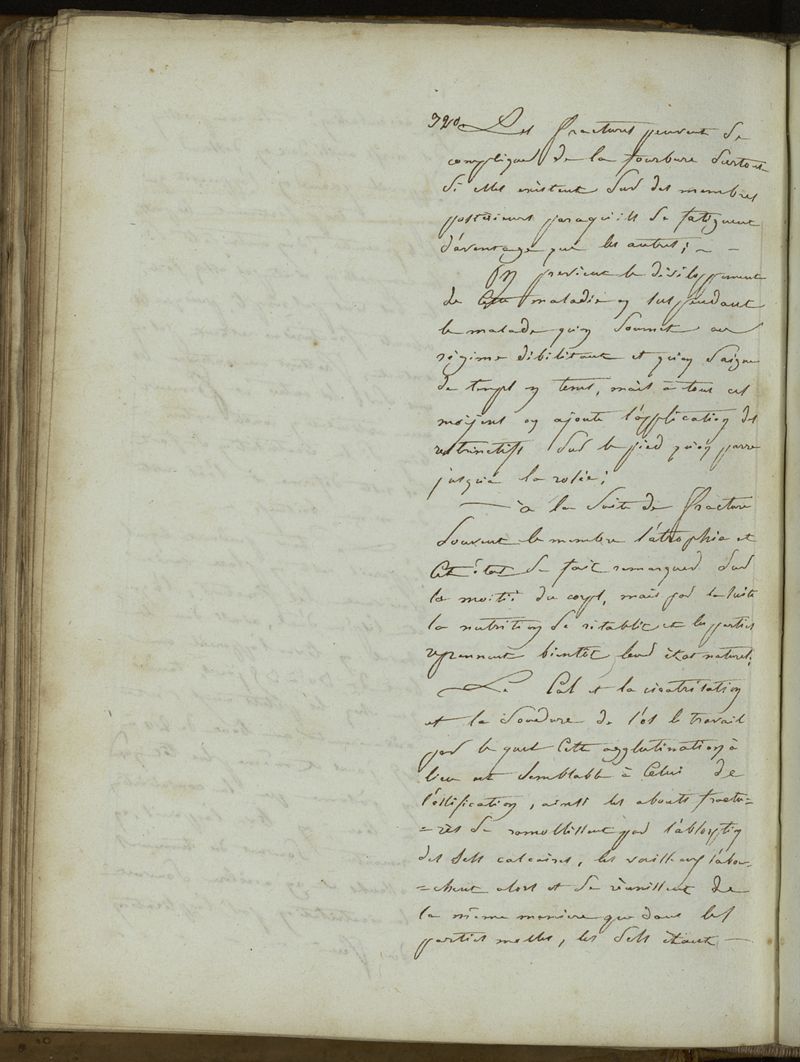 320. Les fractures peuvent se
compliquer de la fourbure surtout
si elles existent sur des membres
postérieurs parcequ'ils se fatiguent
d'avantage que les autres;
On previent le dévéloppement
de cette maladie en suspendant
le malade qu'on soumet au
régime débilitant et qu'on saigne
de temps en tems, mais à tous ces
moÿens on ajoute l'application des
restrinctifs sur le pied qu'on parre
jusqu'à la rosée;
à la suite de fracture
souvent le membre s'atrophie et
cet état se fait remarquer sur
la moitié du corps, mais par la suite
la nutrition se rétablit et les parties
reprennent bientôt leur état naturel;
Le Cal et la cicatrisation
et la soudure de l'os le travail
par le quel cette agglutination à
lieu est semblable à celui de
l'ossification, ainsi les abouts fractu=
=rés se ramollissent par l'absorption
des sels calcaires, les vaisseaux s'abou=
=chent alors et se réunissent de
la même maniere que dans les
parties molles, les sels étant